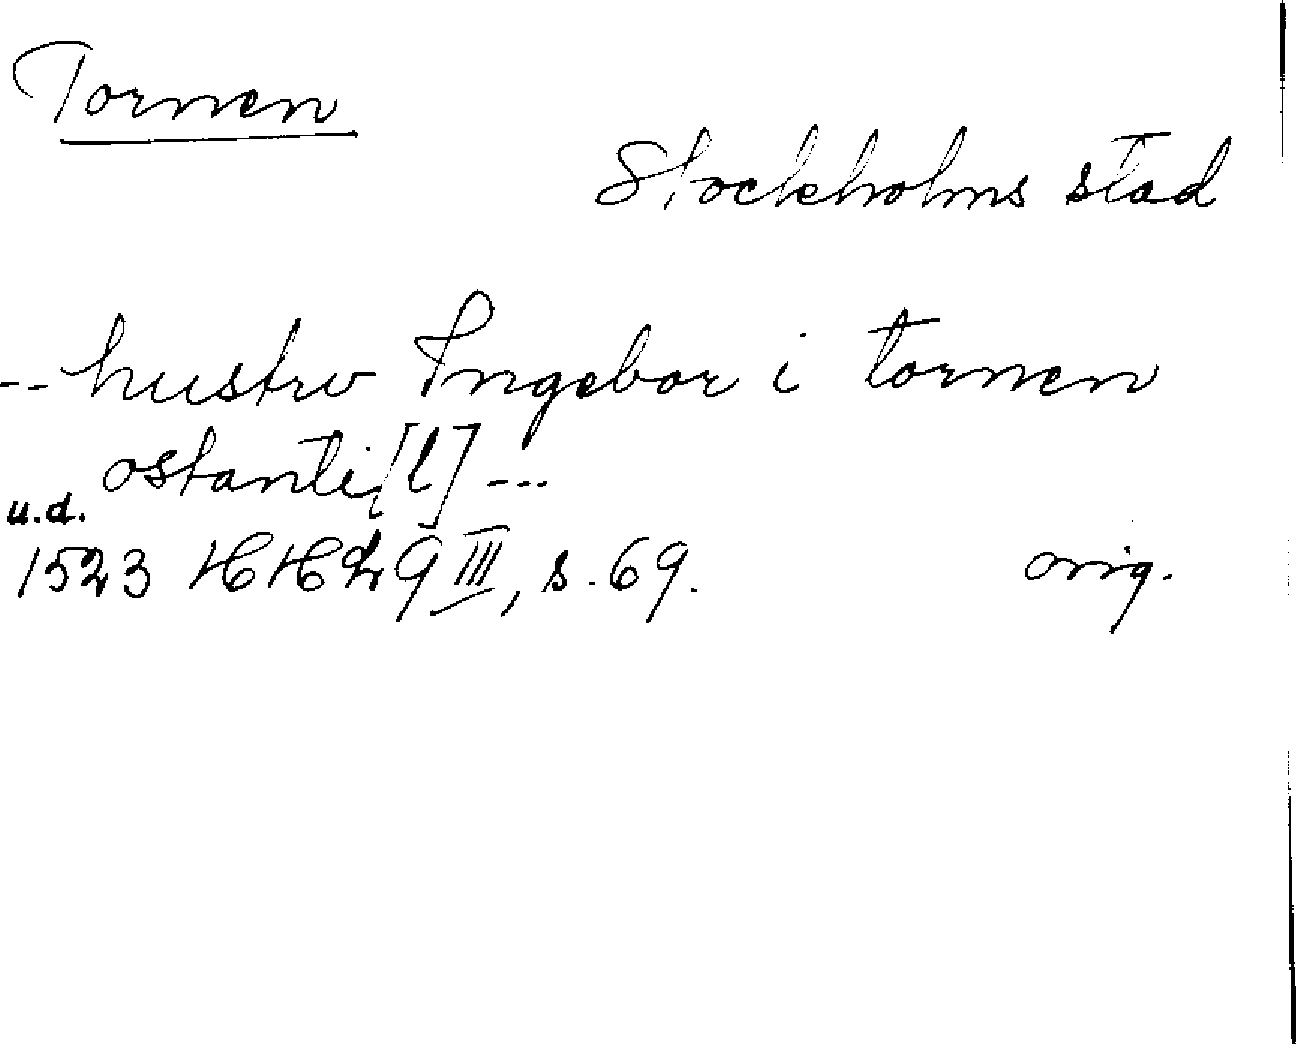 Tornen
Stockholms stad
-- hustrv Ingebor i tornen
ostanti[l] ---
u.d.
1523 HH 29 III, s. 69. orig.